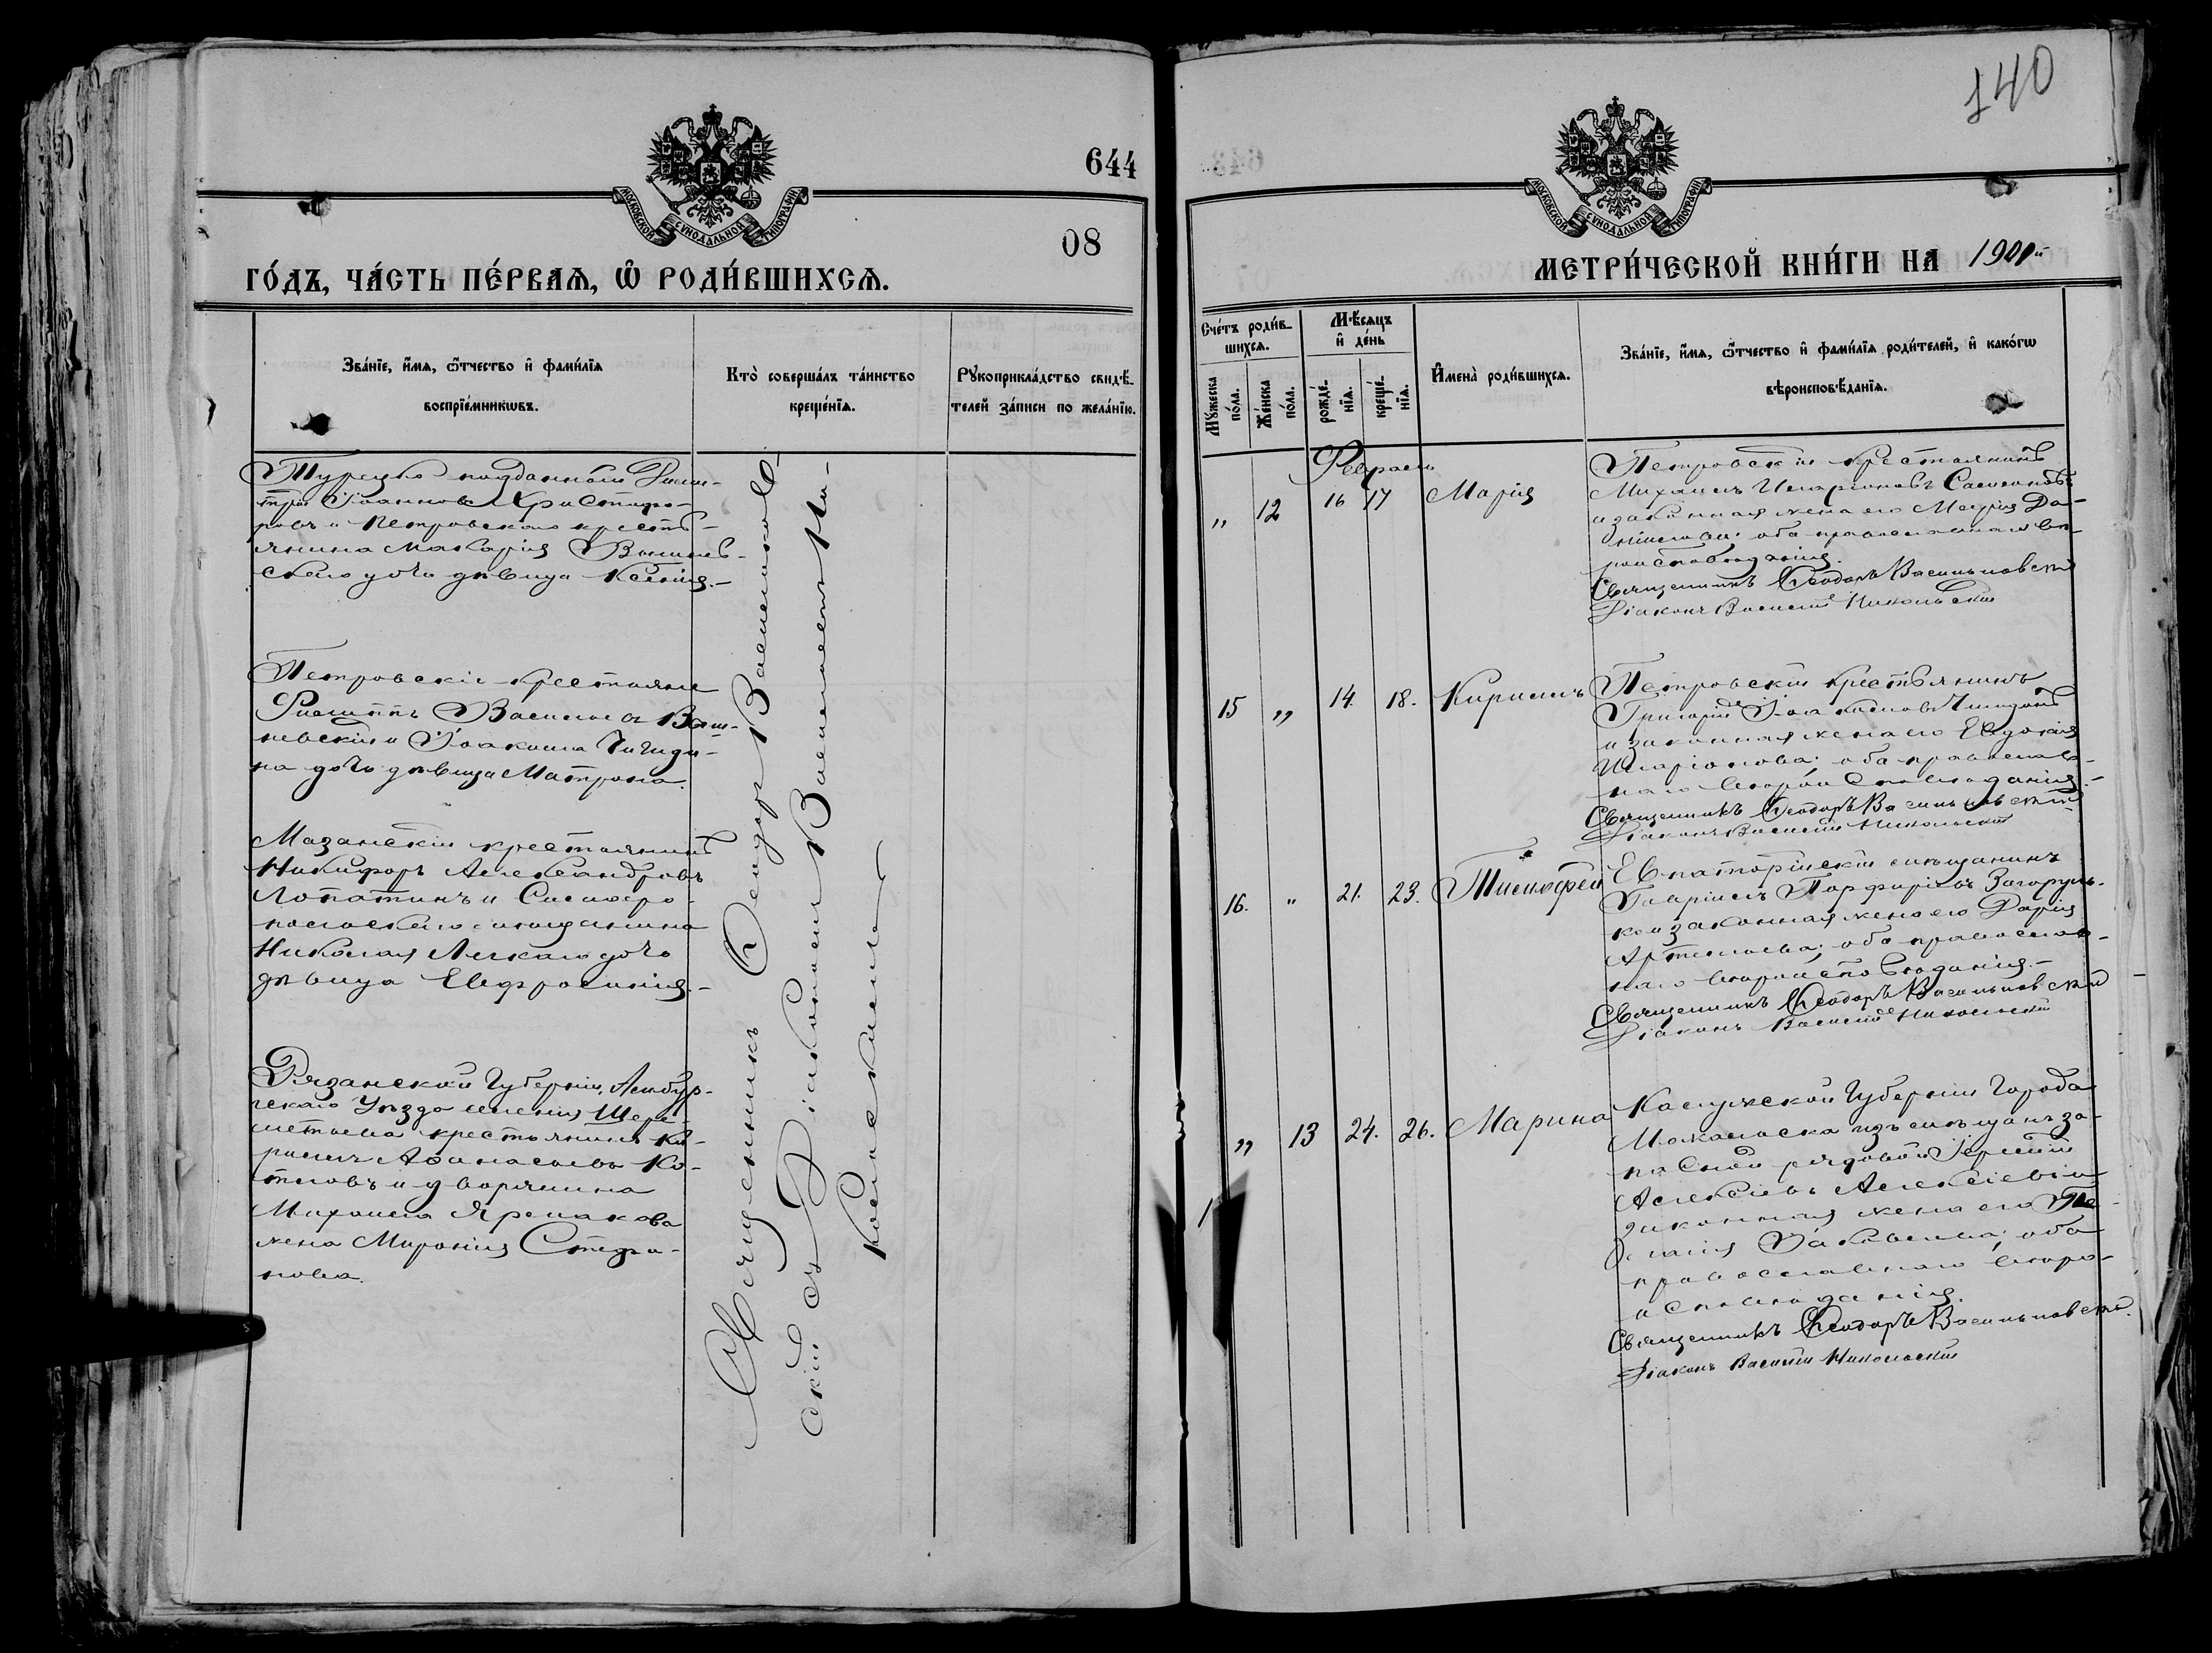 644
МОСКОВСКОЙ СѴНОДАЛЬНОЙ ТИПОГРАФІИ
08
ГО́ДЪ, ЧА́СТЬ ПЕ́РВАѦ, Ѡ҆ РОДИ́ВШИХСѦ.
Зва́нїе, и҆́мѧ, ѻ҆́тчество и҆ фами́лїѧ
воспрїе́мникѡвъ.
Кто̀ соверша́лъ та́инство
креще́нїѧ.
Рꙋкоприкла́дство свидѣ́-
телей за́писи по жела́нїю.
Турецко подданный Дими-
трій Іоанновъ Христофо-
ровъ и Петровскаго кресть-
янина Макарія
дочь дѣвица Ксенія.-
Петровскіе крестьяне
Филиппъ Васильевъ Виш-
невскій и Іоакима Чигиди-
на дочь дѣвица Матрона.
Мазанскій крестьянинъ
Никифоръ Александровъ
Лопатинъ и Симферо-
польскаго мѣщанина
Николая дочь
дѣвица Евфросинія.-
Рязанской Губерніи,
Уѣзда селенія Шере-
метьева крестьянинъ Ки-
риллъ Аѳанасьевъ Ко-
тловъ и дворянина
Михаила Ярмакова
жена Миронія Стефа-
нова.
Священникъ Ѳеодоръ Васильков-
скій съ Діакономъ Василіемъ Ни-
кольскимъ
140
МОСКОВСКОЙ СѴНОДАЛЬНОЙ ТИПОГРАФІИ
МЕТРИ́ЧЕСКОЙ КНИ́ГИ НА 1900й
Сче́тъ роди́в-
шихсѧ.
Мꙋ́жеска по́ла.
Же́нска по́ла.
Мѣ́сѧцъ
и҆ де́нь
рожде́-нїѧ.
креще́-нїѧ.
И҆мена̀ роди́вшихсѧ.
Зва́нїе, и҆́мѧ, ѻ҆́тчество и҆ фами́лїѧ роди́телей, и҆ како́гѡ
вѣроисповѣ́данїѧ.
Февраль
„ 12 16 17 Марія
Петровскій крестьянинъ
Михаилъ Иларіоновъ Самсоновъ
и законная жена его Марія Да-
ніилова; оба православнаго вѣ-
роисповѣданія.
Священникъ Ѳеодоръ Васильковскій
Діаконъ Василій Никольскій
15 „ 14. 18. Кириллъ
Петровскій крестьянинъ
Григорій Іоакимовъ Чигидинъ
и законная жена его Евдокія
Иларіонова; оба православ-
наго вѣроисповѣданія.-
Священникъ Ѳеодоръ Васильковскій
Діаконъ Василій Никольскій
16. „ 21. 23. Тимоѳей
Евпаторійскій мѣщанинъ
Гавріилъ Порфирьевъ Загоруль-
ко и законная жена его Дарія
Артемьева; оба православ-
наго вѣроисповѣданія.-
Священникъ Ѳеодоръ Васильковскій
Діаконъ Василій Никольскій
„ 13 24. 26. Марина
Калужской Губерніи Города
изъ мѣщанъ за-
пасной рядовой Сергѣй
Алексѣевъ Алексѣевъ и
законная жена его Пе-
лагія Яковлева; оба
православнаго вѣро-
исповѣданія.
Священникъ Ѳеодоръ Васильковскій.
Діаконъ Василій Никольскій